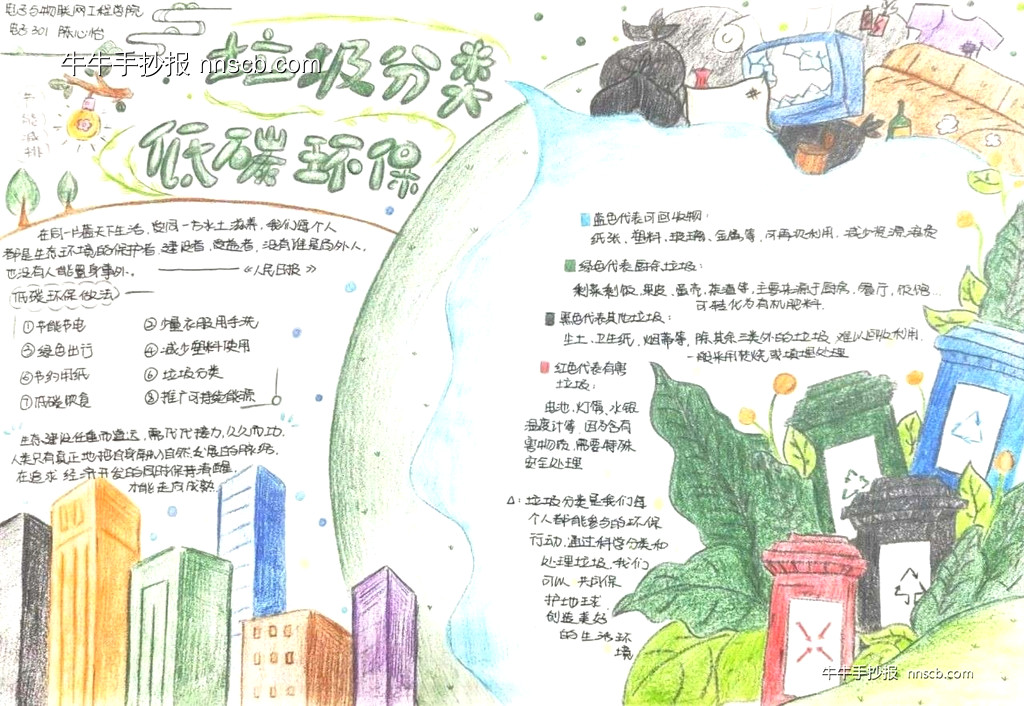 电子与物联网工程学院
电子301 陈心怡
牛牛手抄报 nnscb.com
垃圾分类
低碳环保
节能减排
在同一片蓝天下生活,受同一方水土滋养,我们每个人
都是生态环境的保护者、建设者、受益者,没有谁是局外人,
也没有人能置身事外。——《人民日报》
低碳环保做法
①节能节电 ②少量衣服用手洗
③绿色出行 ④减少塑料使用
⑤节约用纸 ⑥垃圾分类
⑦低碳饮食 ⑧推广可持续能源
生态建设任重而道远,需代代接力,久久而功.
人类只有真正地把自身融入自然发展的脉络,
在追求经济开发的同时保持清醒,
才能走向成熟
蓝色代表可回收物:
纸张,塑料,玻璃,金属等,可再次利用,减少资源浪费
绿色代表厨余垃圾:
剩菜剩饭,果皮,蛋壳,茶渣等,主要来源于厨房,餐厅,饭馆...
可转化为有机肥料.
黑色代表其他垃圾:
尘土,卫生纸,烟蒂等,除其余三类外的垃圾,难以回收利用.
一般采用焚烧或填埋处理
红色代表有害
垃圾:
电池,灯管,水银
温度计等,因为含有
害物质,需要特殊
安全处理
△:垃圾分类是我们每
个人都能参与的环保
行动,通过科学分类和
处理垃圾,我们
可以共同保
护地球
创造美好
的生活环
境
牛牛手抄报 nnscb.com